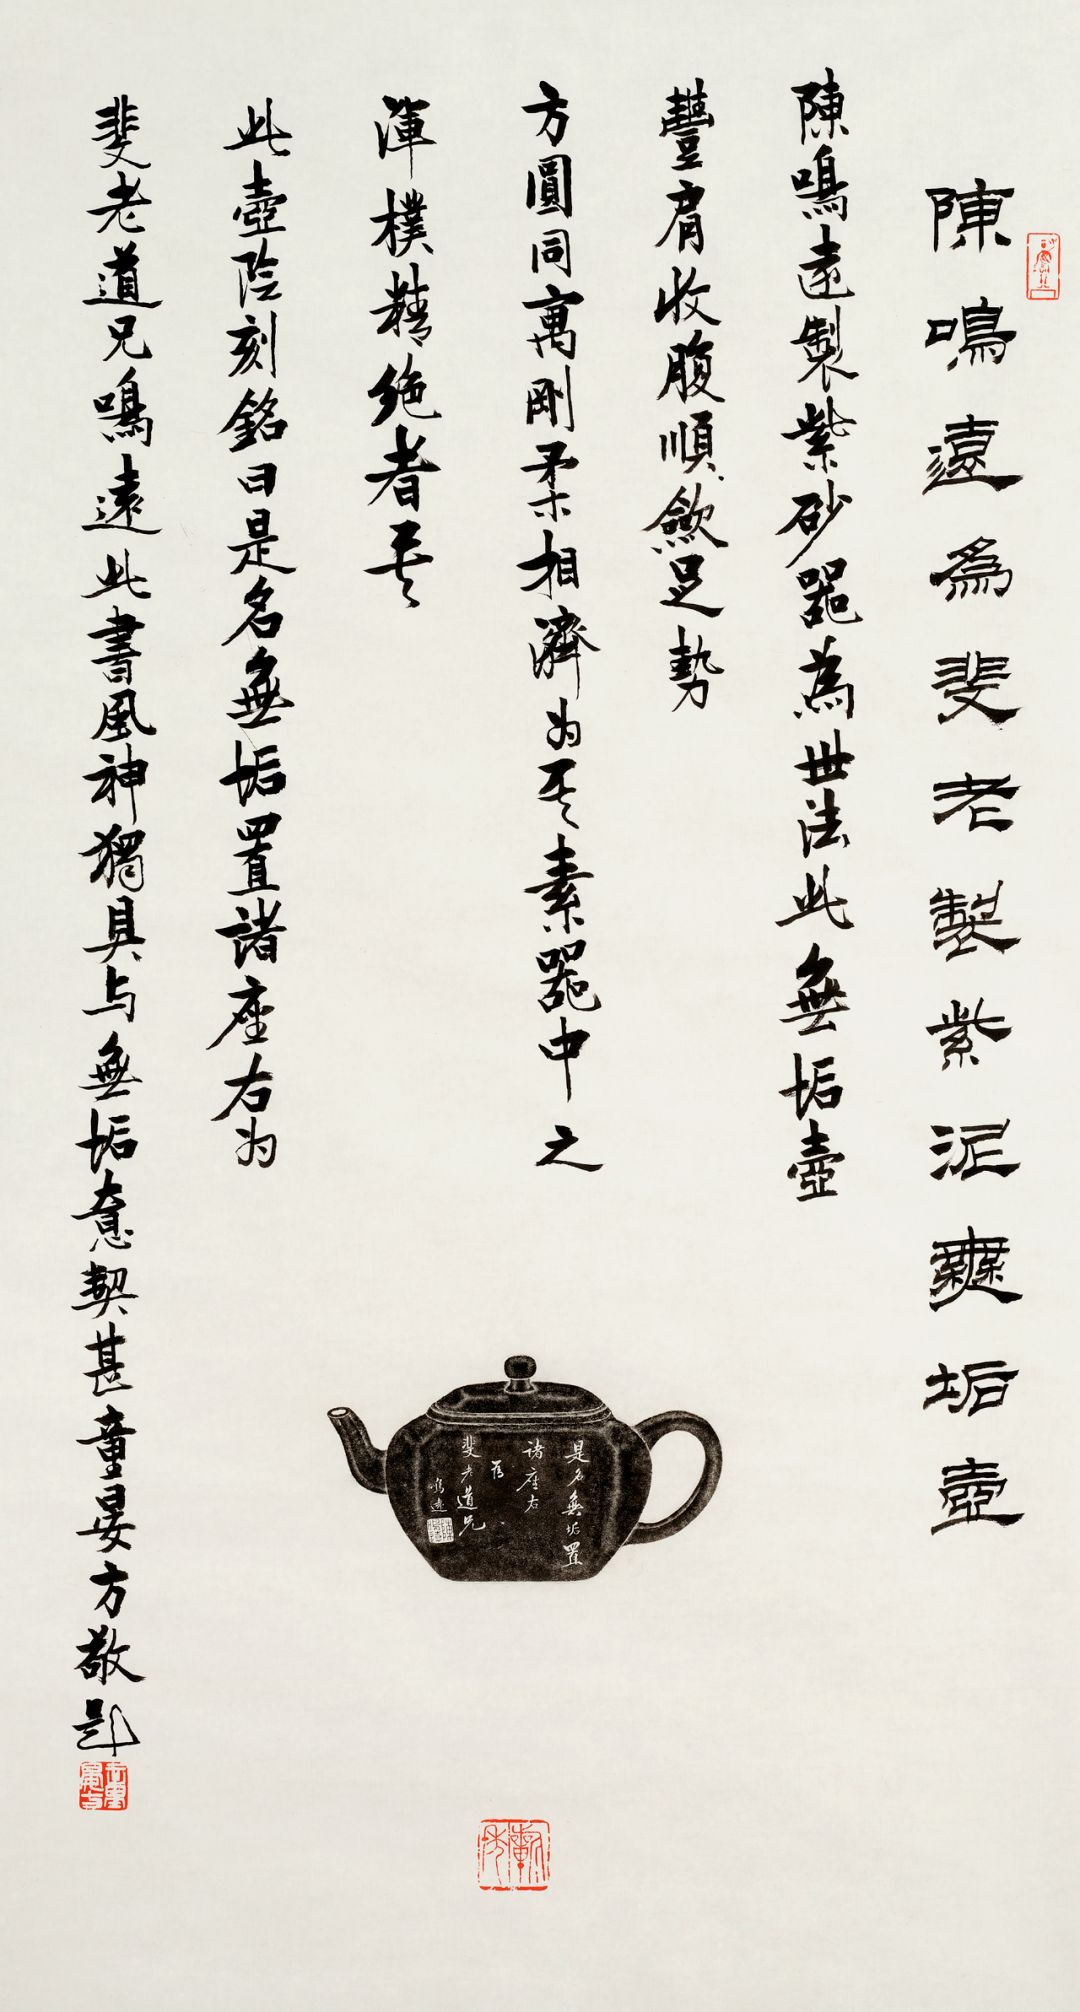 陳鳴遠為斐老製紫泥無垢壺
陳鳴遠製紫砂器為世法此無垢壺
豐肩收腹順斂足勢
方圓同寓剛柔相濟为至素器中之
渾樸精絕者也
此壺陰刻銘曰是名無垢置諸座右为
斐老道兄鳴遠此書風神獨具与無垢意契甚童晏方敬題
是名無垢置
諸座右
為
斐老道兄
鳴遠